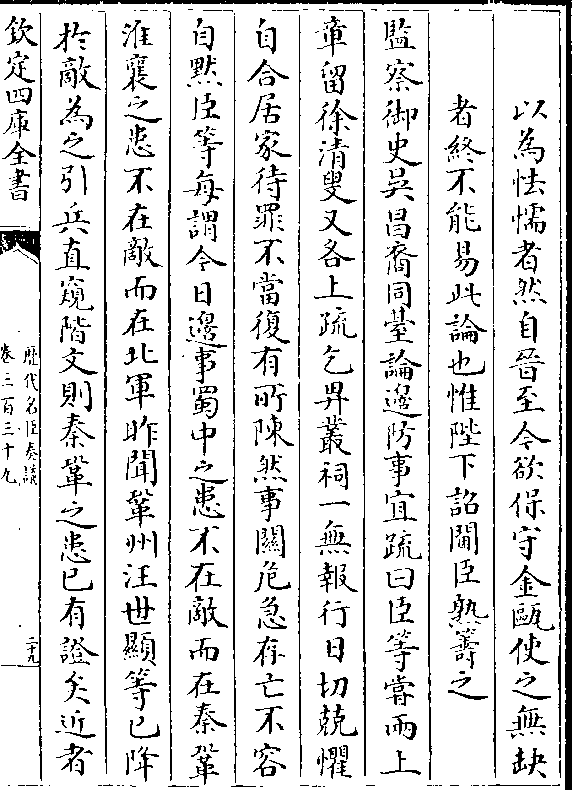 以為怯懦者然自晉至今欲保守金甌使之無缺
者終不能易此論也惟陛下詔閫臣熟籌之
監察御史吳昌裔同臺論邊防事宜疏曰臣等嘗兩上
章留徐清叟又各上疏乞畀叢祠一無報行日切兢懼
自合居家待罪不當復有所陳然事關危急存亡不容
自黙臣等每謂今日邊事蜀中之患不在敵而在秦鞏
淮襄之患不在敵而在北軍昨聞鞏州汪世顯等已降
於敵為之引兵直窺階文則秦鞏之患已有證矣近者
欽定四庫全書
歷代名臣奏議
卷三百三十九
二十九